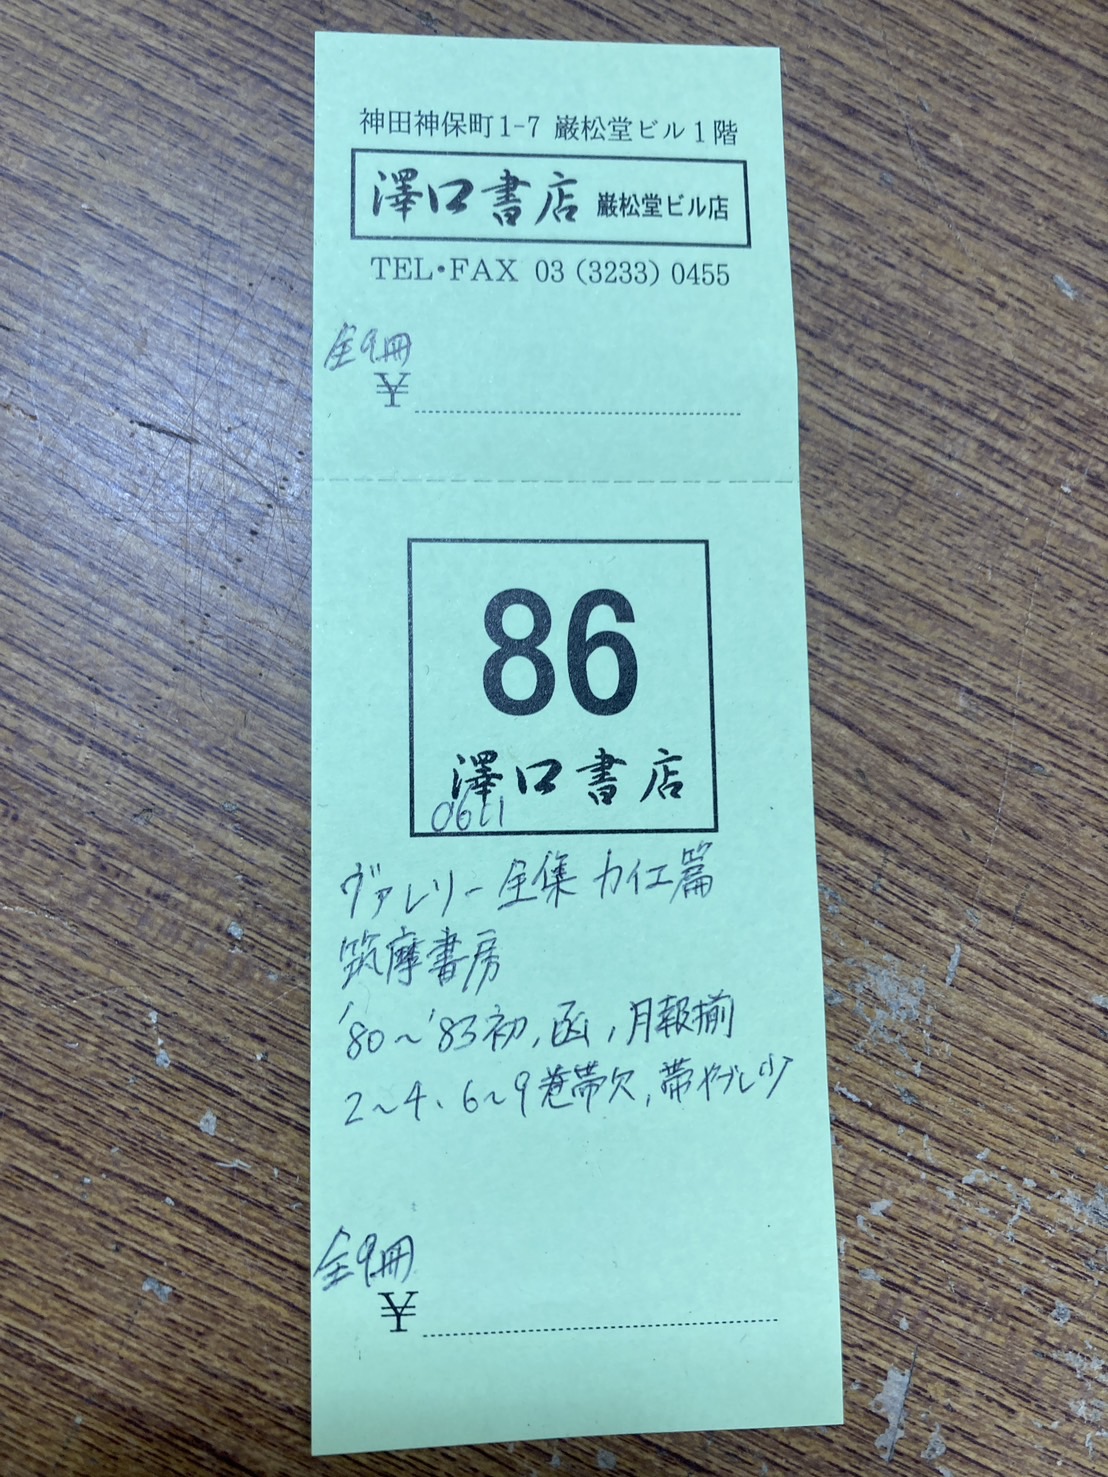 神田神保町1-7 巌松堂ビル1階
澤口書店 巌松堂ビル店
TEL・FAX 03(3233)0455
全9冊
¥
86
澤口書店
0611
ヴァレリー全集 カイエ篇
筑摩書房
'80〜'83初,函,月報揃
2〜4、6〜9巻帯欠,帯ヤブレ少
全9冊
¥